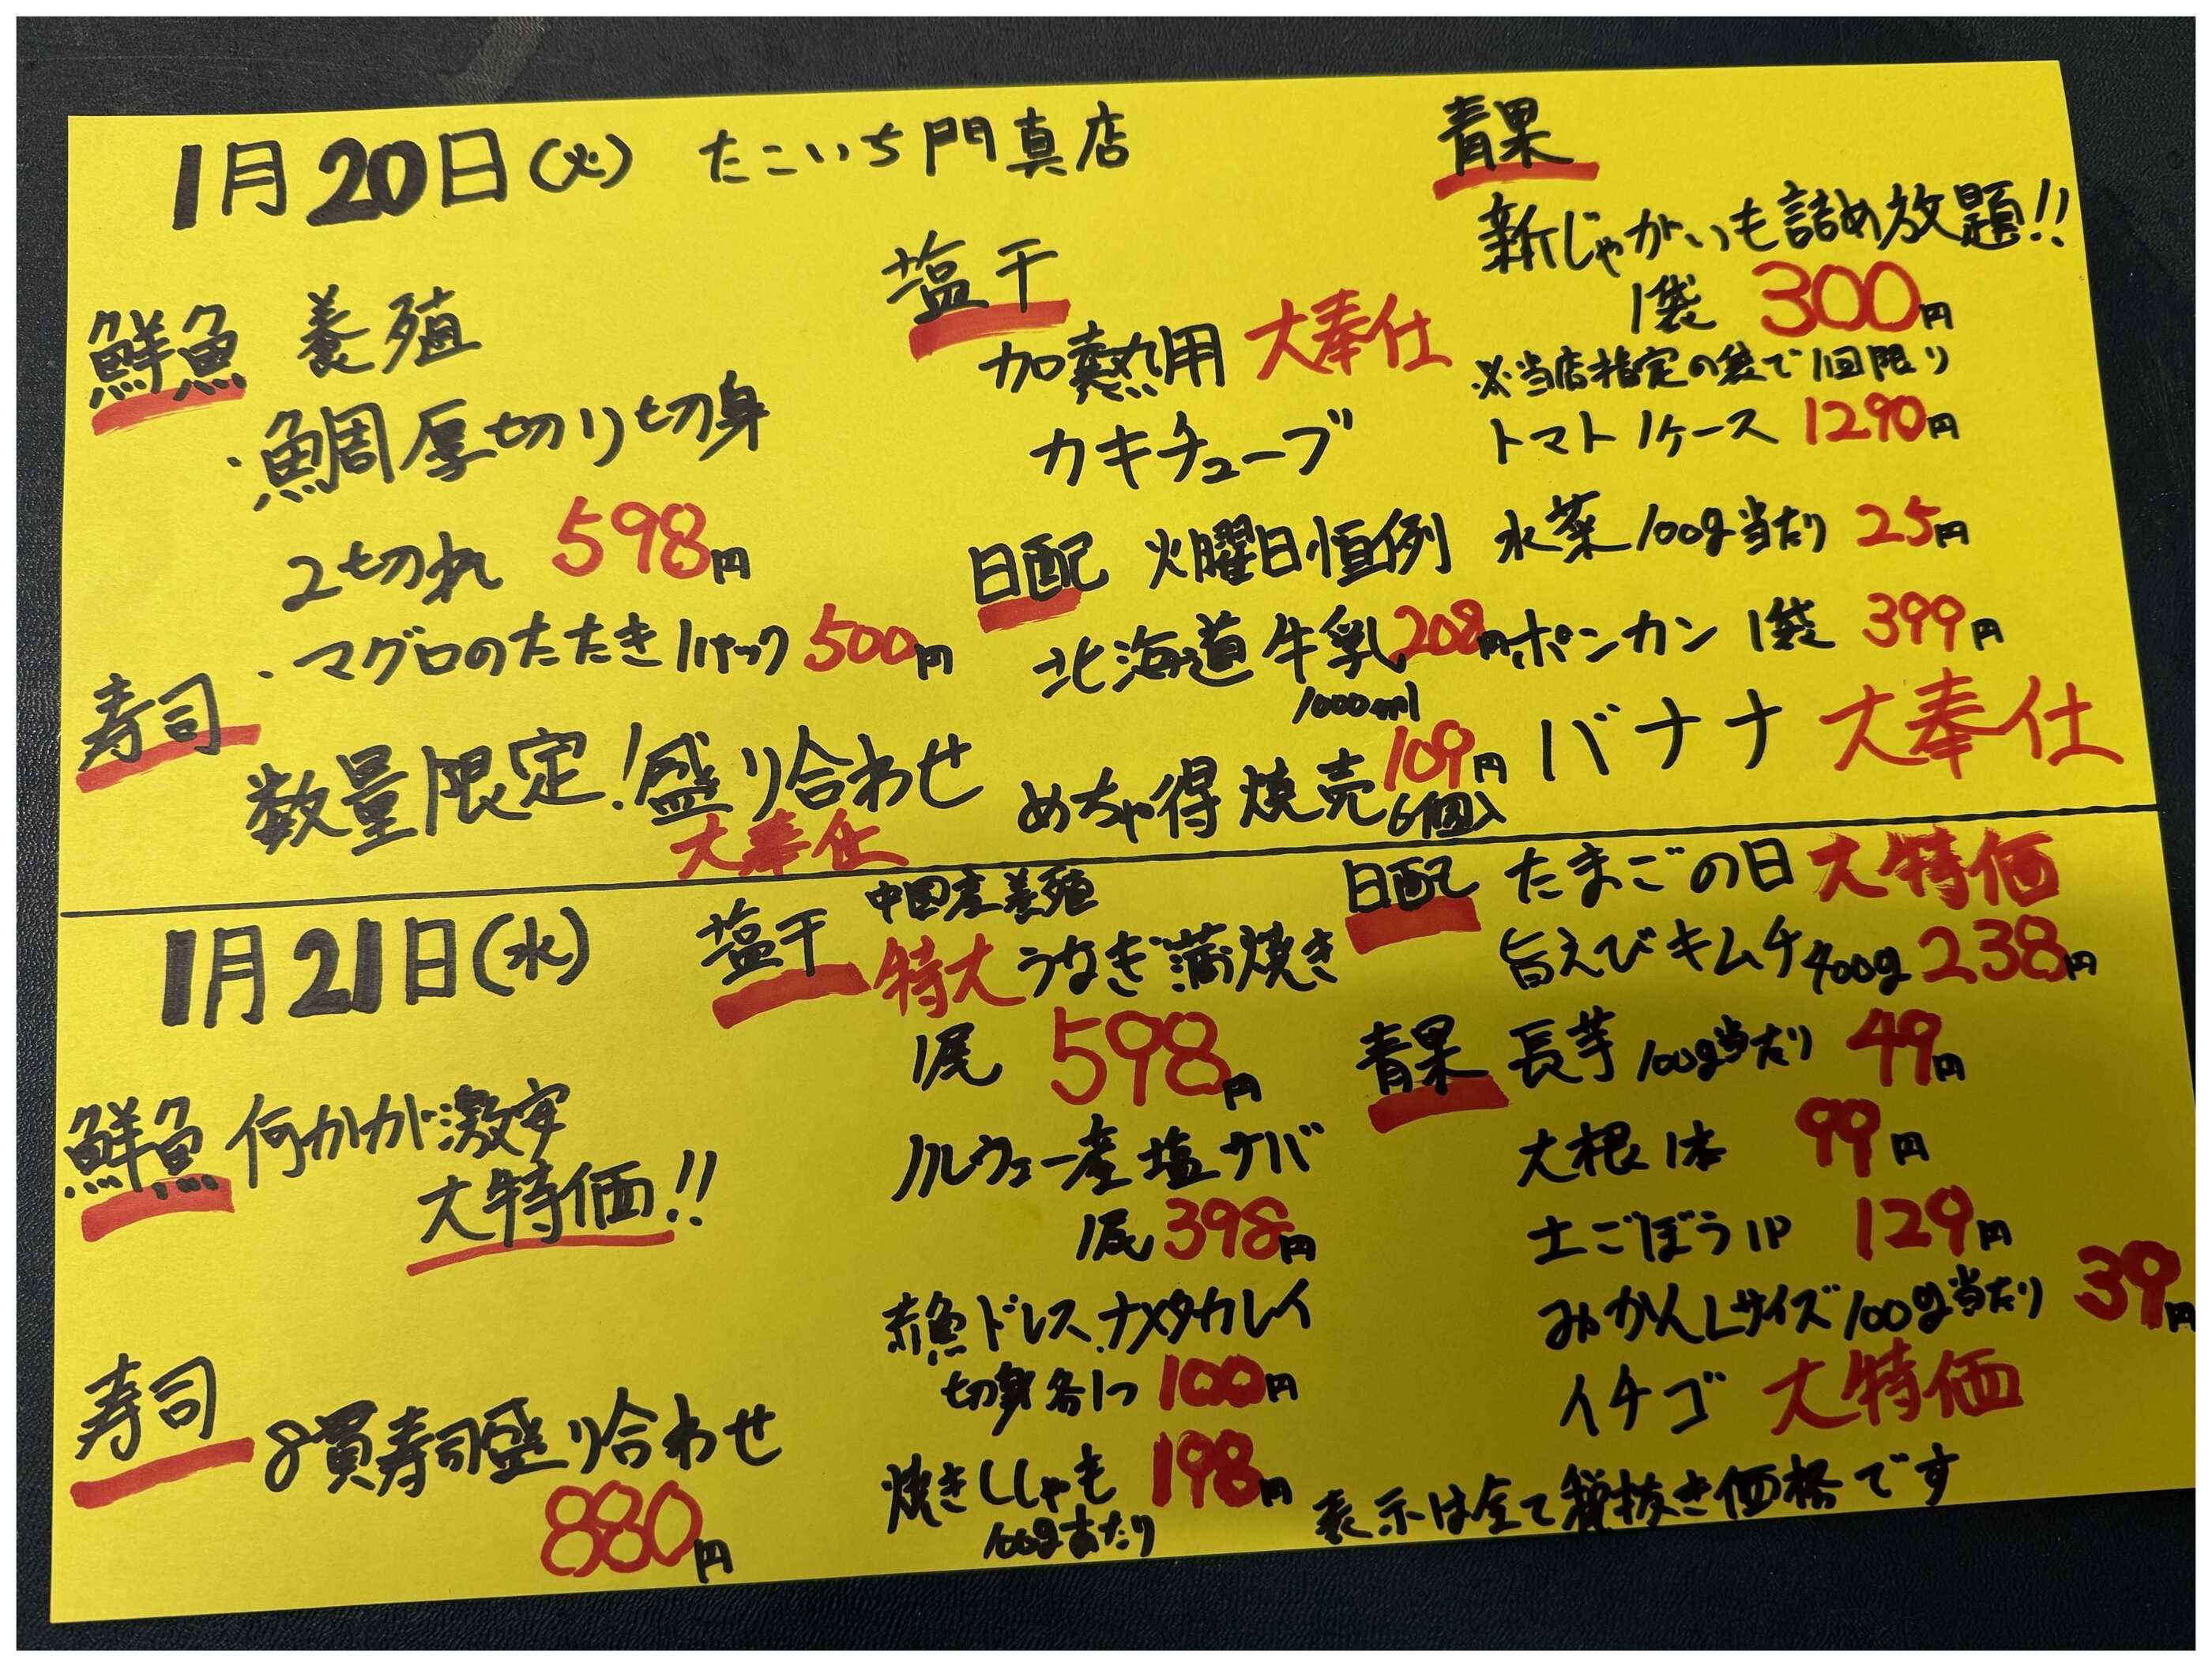 1月20日(火) たこいち門真店
鮮魚 養殖
・鯛厚切り切身
2切れ 598円
・マグロのたたき1パック500円
寿司
数量限定!盛り合わせ
大奉仕
塩干
加熱用 大奉仕
カキチューブ
日配 火曜日恒例
北海道牛乳208円
1000ml
めちゃ得焼売109円
6個入
青果
新じゃがいも詰め放題!!
1袋 300円
※当店指定の袋で1回限り
トマト1ケース 1290円
水菜100g当たり 25円
ポンカン 1袋 399円
バナナ 大奉仕
1月21日(水)
鮮魚 何かが激安
大特価!!
寿司
8貫寿司盛り合わせ
880円
塩干 中国産養殖
特大うなぎ蒲焼き
1尾 598円
ノルウェー産塩サバ
1尾398円
赤魚ドレス.ナメタカレイ
切身各1つ 100円
焼きししゃも 198円
100g当たり
日配 たまごの日 大特価
旨えびキムチ400g 238円
青果 長芋100g当たり 49円
大根1本 99円
土ごぼう1P 129円
みかんLサイズ100g当たり 39円
イチゴ 大特価
表示は全て税抜き価格です